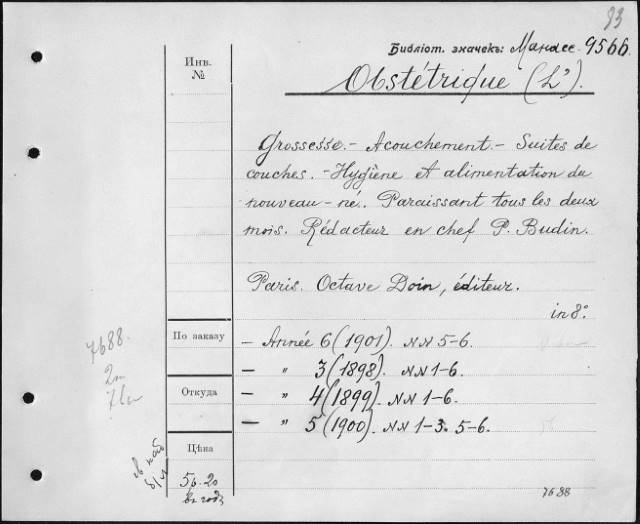 93
Библіот. значекъ: Мандее. 9566.
Инв.
№
Obstétrique (L').
Grossesse. - Acouchement. - Suites de
couches. - Hygiène et alimentation du
nouveau-né. Paraissant tous les deux
mois. Rédacteur en chef P. Budin.
Paris. Octave Doin, éditeur.
in 8°
По заказу
- Année 6 (1901). NN 5-6.
- " 3 (1898). NN 1-6.
Откуда
- " 4 (1899). NN 1-6.
- " 5 (1900). NN 1-3. 5-6.
Цѣна
5р. 20
въ годъ
7688.
7688